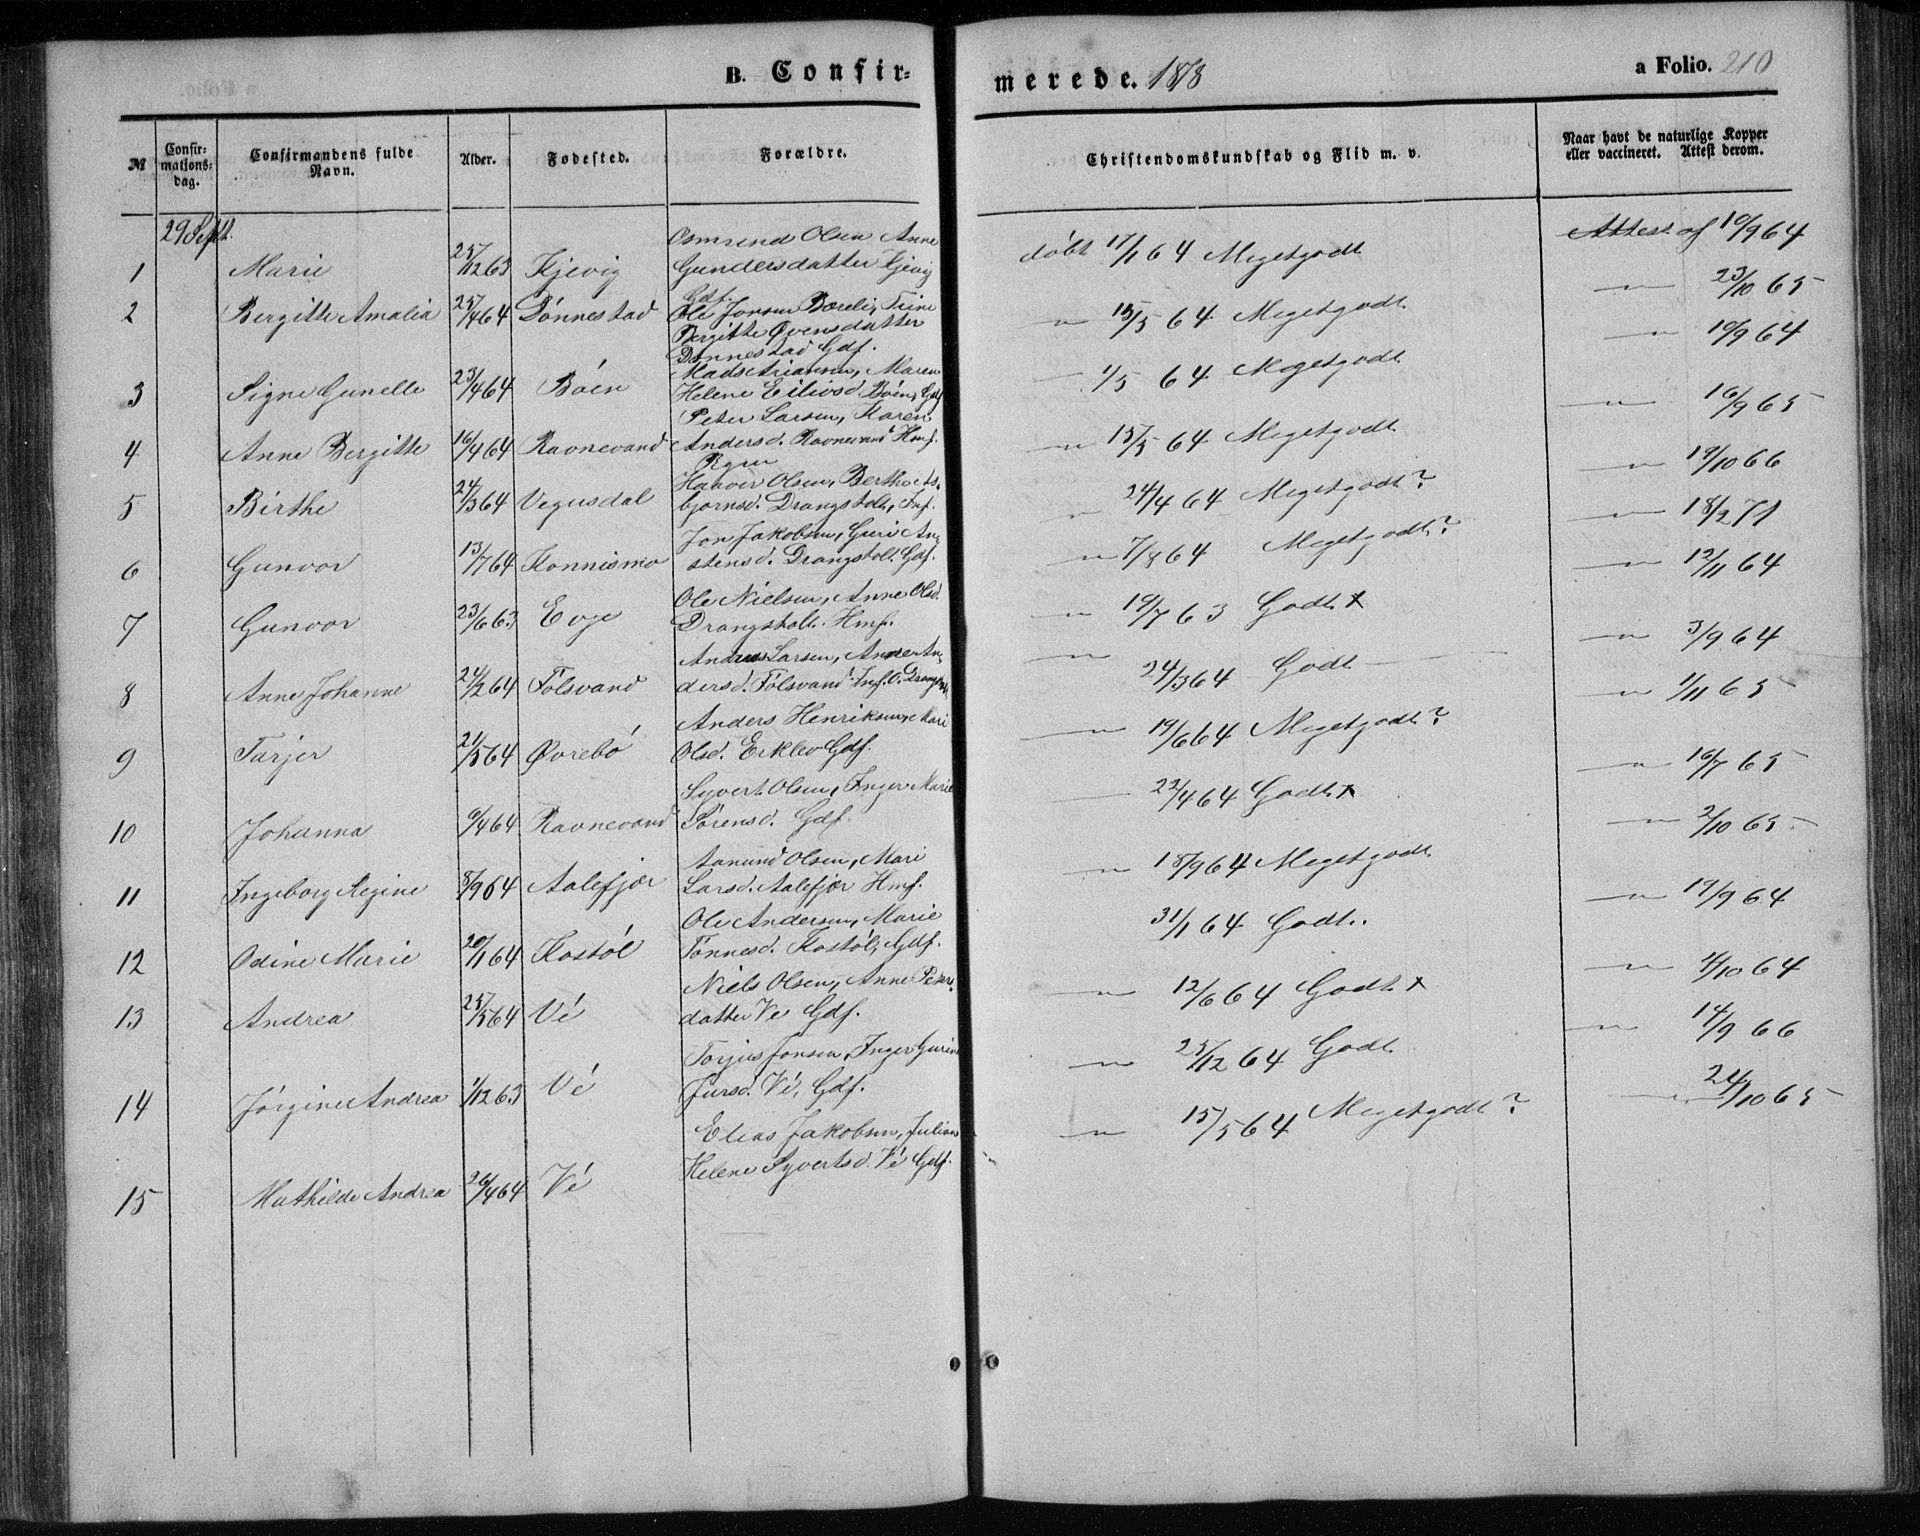 B. Confir-
merede. 1878
a Folio. 210
№
Confir-
mations-
dag.
Confirmandens fulde
Navn.
Alder.
Fødested.
Forældre.
Christendomskundskab og Flid m. v.
Naar havt de naturlige Kopper
eller vaccineret. Attest derom.
29 Sept.
1 Marie 25/12 63 Kjevig
Osmund Olsen Anne
Gundersdatter Kjevig
Gdf.
døbt 17/1 64 Megetgodt
Attest af 19/9 64
2 Bergitte Amalia 25/4 64 Dønnestad
Ole Jonsen Boredi, Trine
Bergitte Ovensdatter
Dønnestad Gdf.
" 15/5 64 Megetgodt
" 23/10 65
3 Signe Gunelle 23/4 64 Bóen
Mads Ariansen, Maren
Helene Eiliosd. Bóen, Gdf
1/5 64 Megetgodt
" 19/9 64
4 Anne Bergitte 16/4 64 Ravnevand
Peter Larsen, Karen
Andersd. Ravnevand Hmf.
" 15/5 64 Megetgodt
" 16/9 65
5 Birthe 24/3 64 Vegusdal
Haaver Olsen, Berthe As-
bjornsd. Drangsholt, Inf.
" 24/4 64 Megetgodt?
" 19/10 66
6 Gunvor 13/7 64 Konnismo
Jon Jakobsen, Guri An-
stensd. Drangsholt Gdf.
" 7/8 64 Megetgodt?
" 18/2 71
7 Gunvor 23/6 63 Evje
Ole Nielsen, Anne Olsd.
Drangsholt. Hmf.
" 19/7 63 Godt x
" 12/11 64
8 Anne Johanne 24/2 64 Fólsvand
Andreas Larsen, Anne An-
dersd. Fólsvand Inf.
" 24/3 64 Godt
" 3/9 64
9 Tarjer 21/5 64 Øvrebó
Anders Henriksen, Mari
Olsd. Erklev Gdf.
" 19/6 64 Megetgodt?
" 1/11 65
10 Johanna 9/4 64 Ravnevand
Syvert Olsen, Inger Marie
Sórensd. Gdf.
22/4 64 Godt x
" 16/7 65
11 Ingeborg Regine 8/9 64 Aalefjær
Aanund Olsen, Mari
Larsd. Aalefjær Hmf.
" 18/9 64 Megetgodt
" 2/10 65
12 Odine Marie 20/1 64 Kostól
Ole Andersen, Marie
Tónnesd. Kostól, Gdf.
31/1 64 Godt.
" 19/9 64
13 Andrea 25/5 64 Vé
Niels Olsen, Anne Peders
datter Ve Gdf.
" 12/6 64 Godt x
" 4/10 64
14 Jórgine Andrea 1/12 63 Vé
Torjus Jonsen, Inger Gurine
Jursd. Vé, Gdf.
" 25/12 64 Godt
" 14/9 66
15 Mathilde Andrea 26/4 64 Vé
Elias Jakobsen, Juliane
Helene Syvertsd. Vé Gdf.
" 15/5 64 Megetgodt?
" 24/10 65